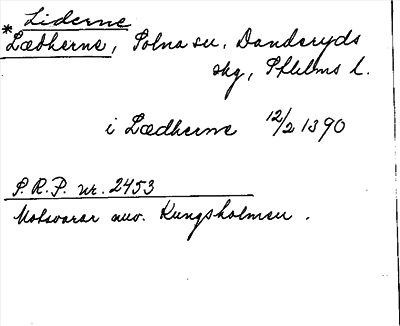 Liderne
*Lædherne, Solna sn. Danderyds
skg, Sthlms l.
i Lædherne 12/2 1390
S.R.P. nr. 2453
Motsvarar nuv. Kungsholmen.